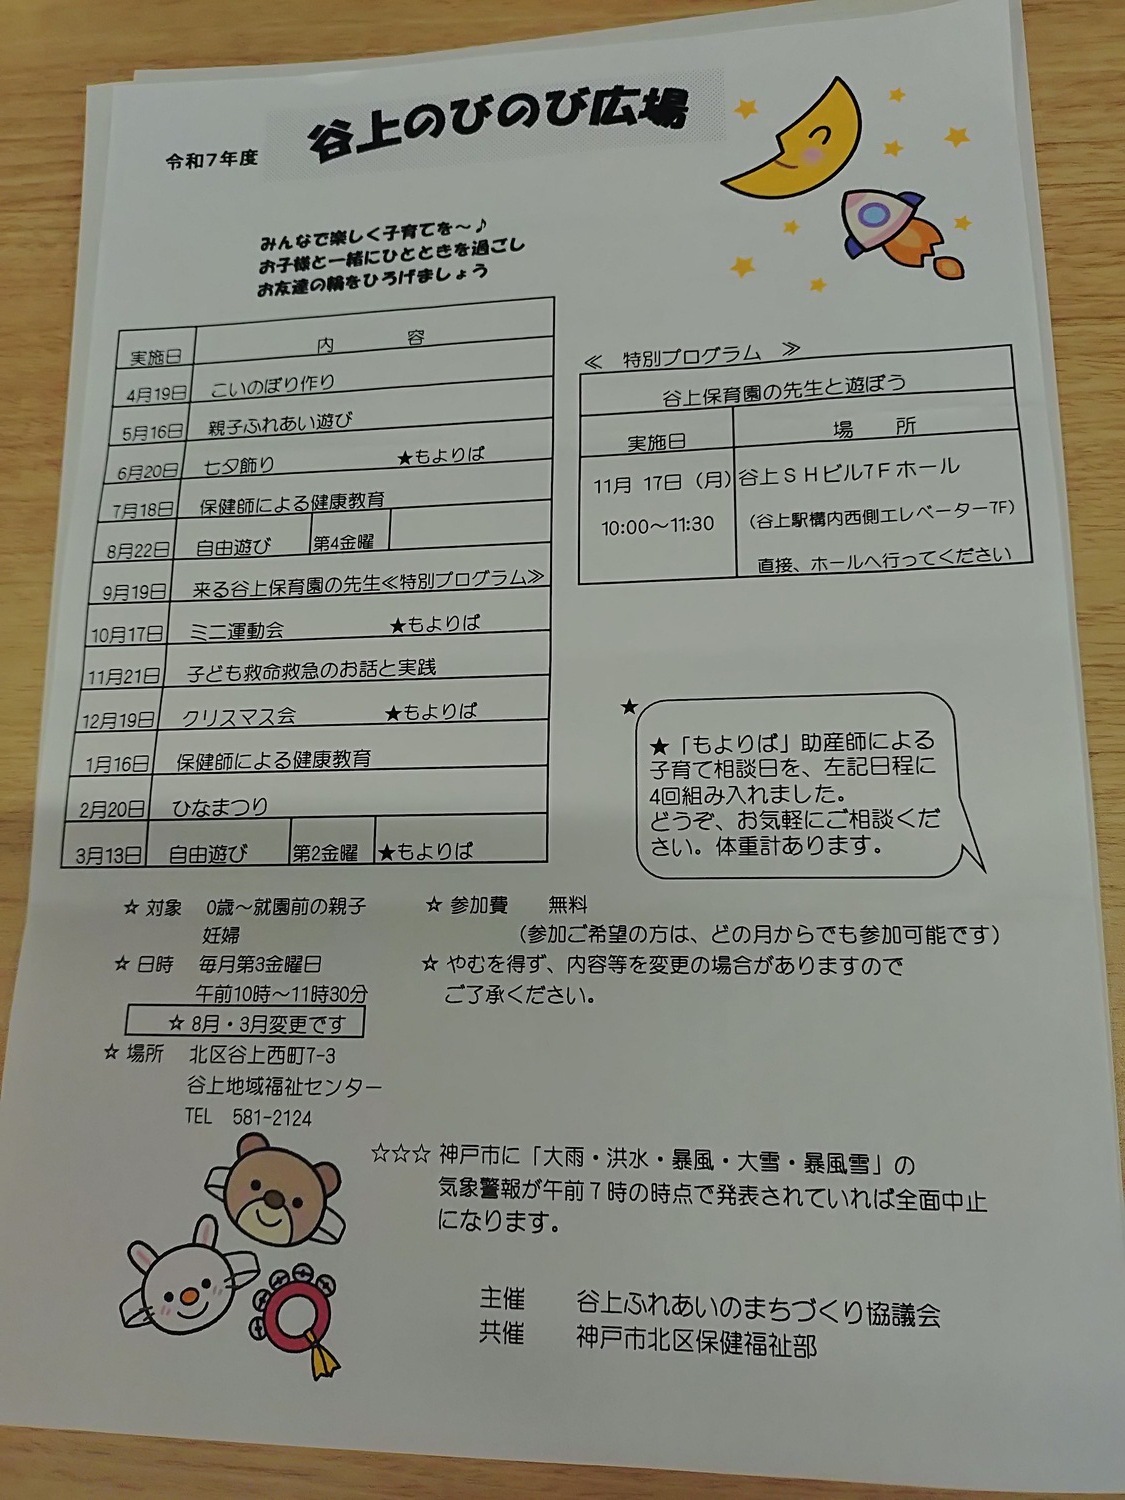 令和7年度
谷上のびのび広場
みんなで楽しく子育てを～♪
お子様と一緒にひとときを過ごし
お友達の輪をひろげましょう
実施日 内 容
4月19日 こいのぼり作り
5月16日 親子ふれあい遊び
6月20日 七夕飾り ★もよりば
7月18日 保健師による健康教育
8月22日 自由遊び 第4金曜
9月19日 来る谷上保育園の先生≪特別プログラム≫
10月17日 ミニ運動会 ★もよりば
11月21日 子ども救命救急のお話と実践
12月19日 クリスマス会 ★もよりば
1月16日 保健師による健康教育
2月20日 ひなまつり
3月13日 自由遊び 第2金曜 ★もよりば
≪ 特別プログラム ≫
谷上保育園の先生と遊ぼう
実施日 場 所
11月 17日（月） 谷上ＳＨビル7Ｆホール
10:00～11:30 （谷上駅構内西側エレベーター7F）
直接、ホールへ行ってください
★
★「もよりば」助産師による
子育て相談日を、左記日程に
4回組み入れました。
どうぞ、お気軽にご相談くだ
さい。体重計あります。
☆ 対象 0歳～就園前の親子
妊婦
☆ 日時 毎月第3金曜日
午前10時～11時30分
☆ 8月・3月変更です
☆ 場所 北区谷上西町7-3
谷上地域福祉センター
TEL 581-2124
☆ 参加費 無料
（参加ご希望の方は、どの月からでも参加可能です）
☆ やむを得ず、内容等を変更の場合がありますので
ご了承ください。
☆☆☆ 神戸市に「大雨・洪水・暴風・大雪・暴風雪」の
気象警報が午前７時の時点で発表されていれば全面中止
になります。
主催 谷上ふれあいのまちづくり協議会
共催 神戸市北区保健福祉部